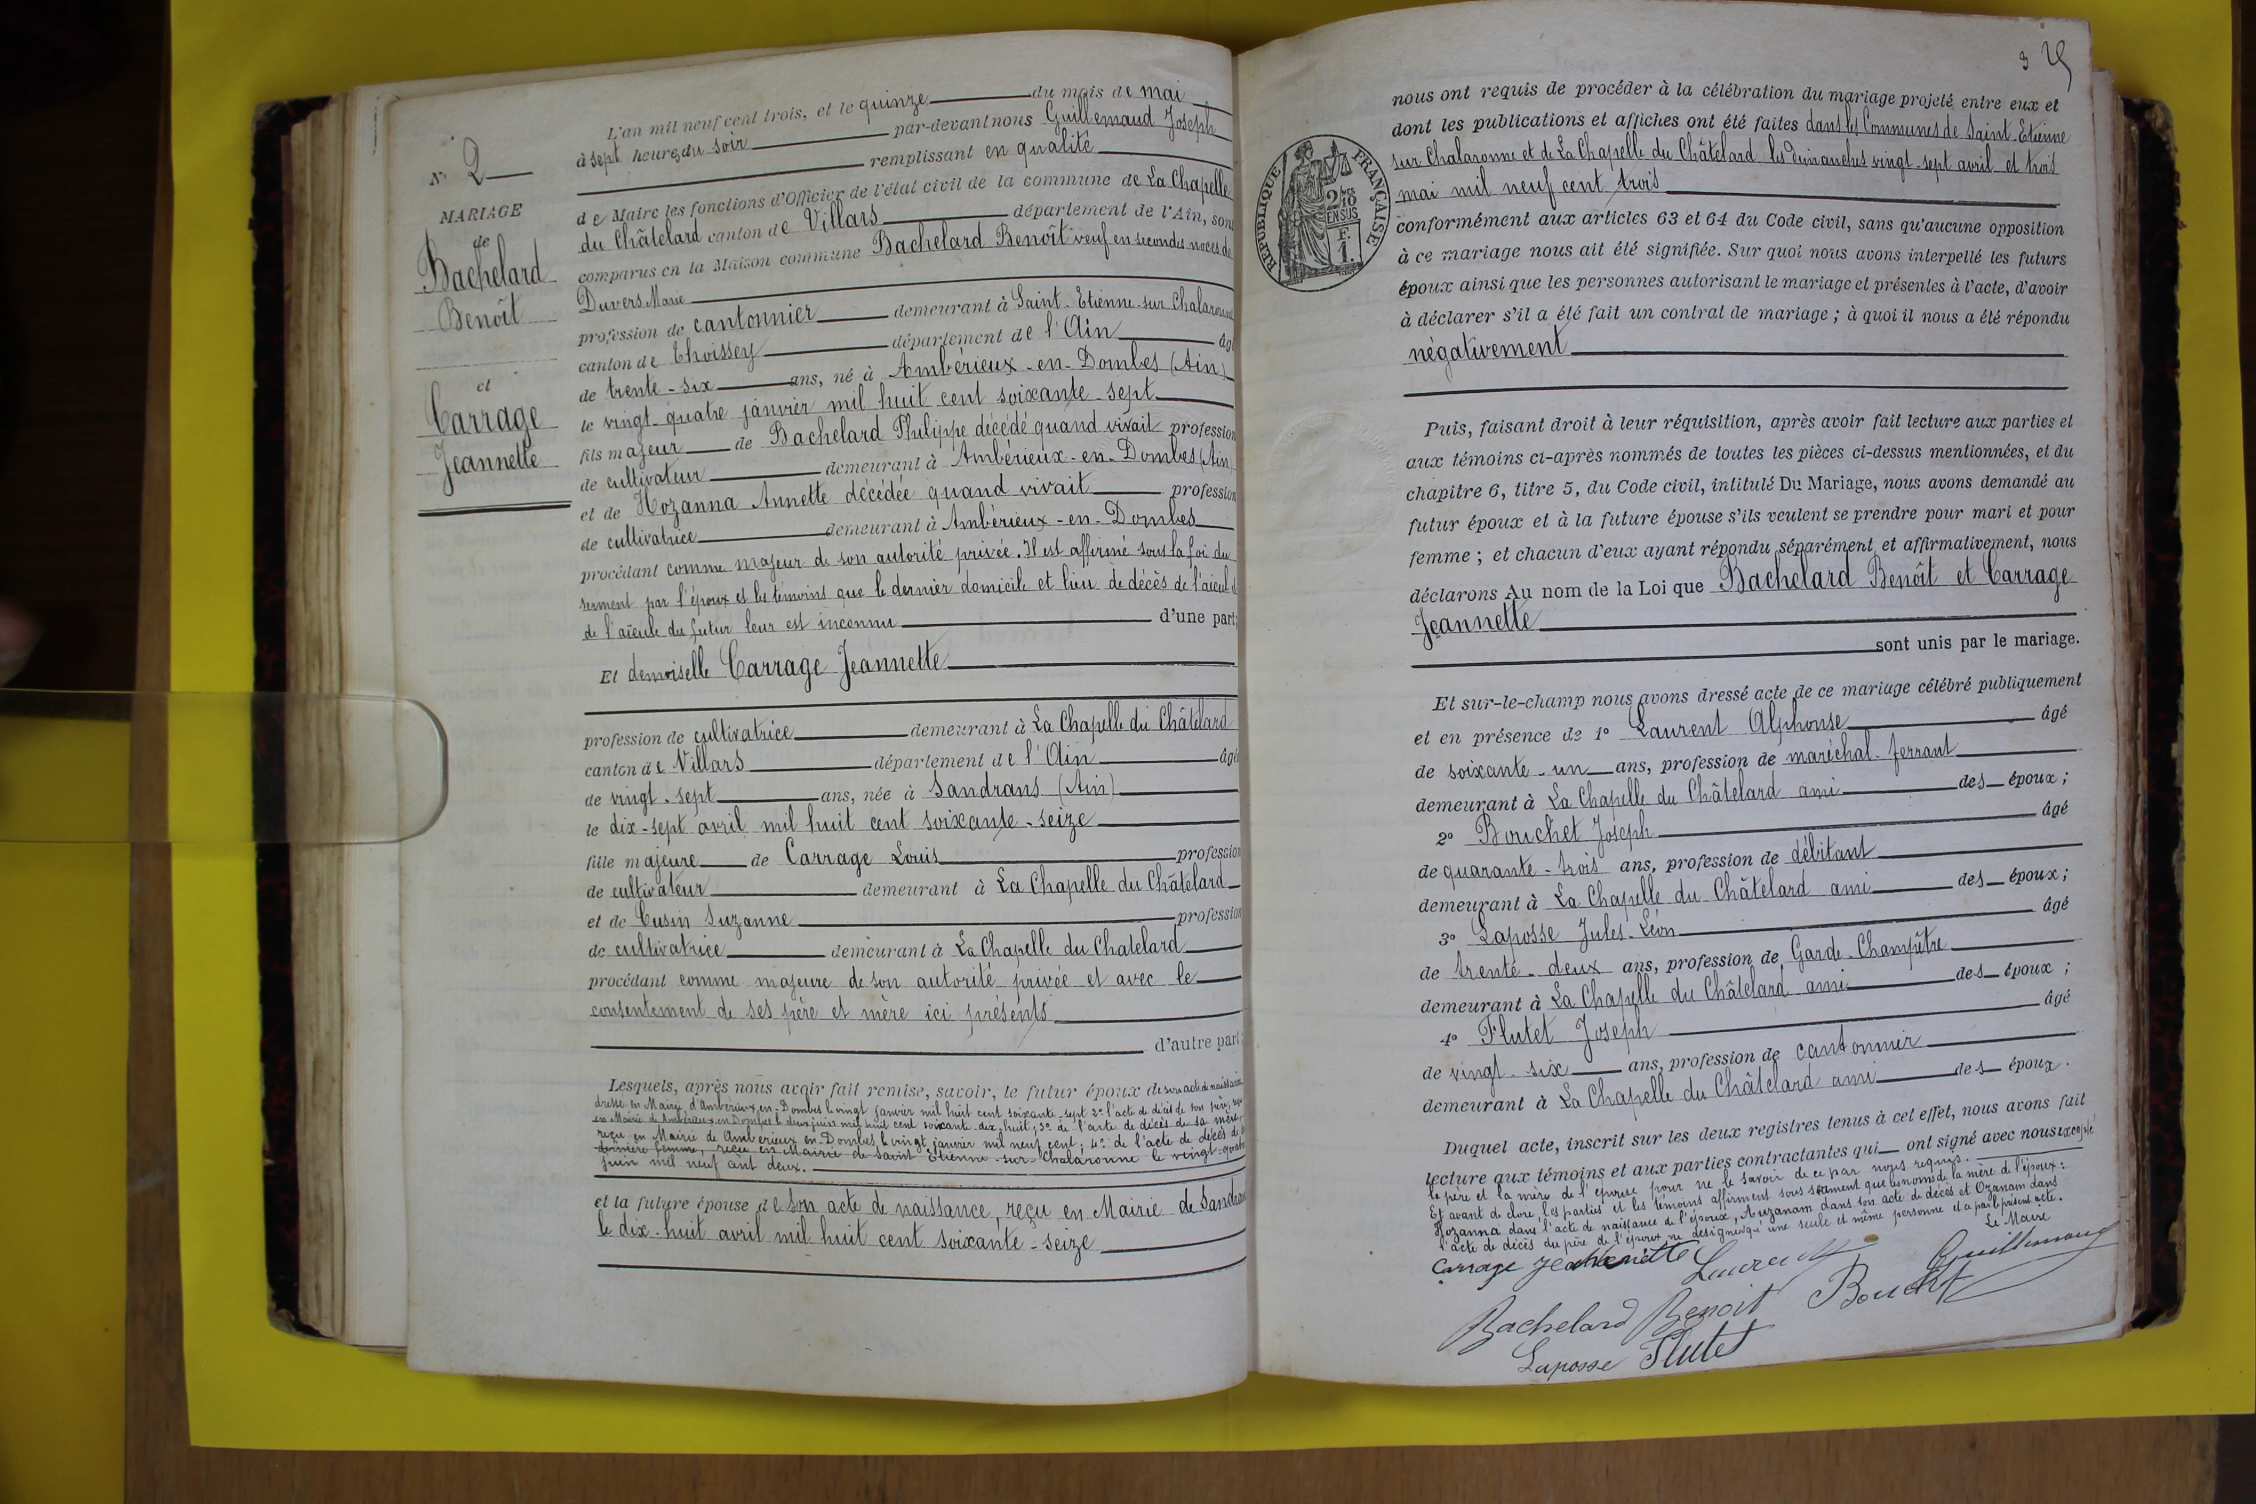 N° 2
MARIAGE
de
Bachelard
Benoît
et
Carrage
Jeannette
L'an mil neuf cent trois, et le quinze du mois de mai
à sept heures du soir par-devant nous Guillemaud Joseph
remplissant en qualité
de Maire les fonctions d'Officier de l'état civil de la commune de La Chapelle
du Châtelard canton de Villars département de l'Ain, sont
comparus en la Maison commune Bachelard Benoît veuf en secondes noces de
Duvers Marie
profession de cantonnier demeurant à Saint-Etienne-sur-Chalaronne
canton de Thoissey département de l'Ain âgé
de trente-six ans, né à Ambérieux-en-Dombes (Ain)
le vingt-quatre janvier mil huit cent soixante-sept
fils majeur de Bachelard Philippe décédé quand vivait profession
de cultivateur demeurant à Ambérieux-en-Dombes (Ain)
et de Hozanna Annette décédée quand vivait profession
de cultivatrice demeurant à Ambérieux-en-Dombes
procédant comme majeur de son autorité privée. Il est affirmé sous la foi du
serment par l'époux et les témoins que le dernier domicile et lieu de décès de l'aïeul &
de l'aïeule du futur leur est inconnu d'une part;
Et demoiselle Carrage Jeannette
profession de cultivatrice demeurant à La Chapelle du Châtelard
canton de Villars département de l'Ain âgée
de vingt-sept ans, née à Sandrans (Ain)
le dix-sept avril mil huit cent soixante-seize
fille majeure de Carrage Louis profession
de cultivateur demeurant à La Chapelle du Châtelard
et de Cusin Suzanne profession
de cultivatrice demeurant à La Chapelle du Chatelard
procédant comme majeure de son autorité privée et avec le
consentement de ses père et mère ici présents
d'autre part
Lesquels, après nous avoir fait remise, savoir, le futur époux de son acte de naissance
dressé en Mairie d'Ambérieux-en-Dombes le vingt janvier mil huit cent soixante-sept 2° l'acte de décès de son père, reçu
en Mairie de Ambérieux en Dombes le deux juin mil huit cent soixante-dix-huit; 3° de l'acte de décès de sa mère,
reçu en Mairie de Ambérieux en Dombes le vingt janvier mil neuf cent; 4° de l'acte de décès de sa
dernière femme, reçu en Mairie de Saint Etienne-sur-Chalaronne le vingt-quatre
juin mil neuf cent deux.
et la future épouse de son acte de naissance, reçu en Mairie de Sandrans
le dix-huit avril mil huit cent soixante-seize
3
RÉPUBLIQUE FRANÇAISE
2/10
EN SUS
nous ont requis de procéder à la célébration du mariage projeté entre eux et
dont les publications et affiches ont été faites dans les Communes de Saint-Etienne
sur Chalaronne et de La Chapelle du Châtelard les dimanches vingt-sept avril et trois
mai mil neuf cent trois
conformément aux articles 63 et 64 du Code civil, sans qu'aucune opposition
à ce mariage nous ait été signifiée. Sur quoi nous avons interpellé les futurs
époux ainsi que les personnes autorisant le mariage et présentes à l'acte, d'avoir
à déclarer s'il a été fait un contrat de mariage; à quoi il nous a été répondu
négativement
Puis, faisant droit à leur réquisition, après avoir fait lecture aux parties et
aux témoins ci-après nommés de toutes les pièces ci-dessus mentionnées, et du
chapitre 6, titre 5, du Code civil, intitulé Du Mariage, nous avons demandé au
futur époux et à la future épouse s'ils veulent se prendre pour mari et pour
femme; et chacun d'eux ayant répondu séparément et affirmativement, nous
déclarons Au nom de la Loi que Bachelard Benoît et Carrage
Jeannette
sont unis par le mariage.
Et sur-le-champ nous avons dressé acte de ce mariage célébré publiquement
et en présence de 1° Laurent Alphonse âgé
de soixante-un ans, profession de maréchal-ferrant
demeurant à La Chapelle du Châtelard ami des époux;
2° Bouchet Joseph âgé
de quarante-trois ans, profession de débitant
demeurant à La Chapelle du Châtelard ami des époux;
3° Laposse Jules-Léon âgé
de trente-deux ans, profession de Garde-Champêtre
demeurant à La Chapelle du Châtelard ami des époux;
4° Flutet Joseph âgé
de vingt-six ans, profession de cantonnier
demeurant à La Chapelle du Châtelard ami des époux.
Duquel acte, inscrit sur les deux registres tenus à cet effet, nous avons fait
lecture aux témoins et aux parties contractantes qui ont signé avec nous excepté
le père et la mère de l'épouse pour ne le savoir de ce par nous requis.
Et avant de clore, les parties et les témoins affirment sous serment que les noms de la mère de l'époux:
Hozanna dans l'acte de naissance de l'époux, Auzanam dans son acte de décès et Ozanam dans
l'acte de décès du père de l'époux ne désignent qu'une seule et même personne et a par le présent acte.
Le Maire
Carrage Jeannette Laurent Guillemaud
Bachelard Benoit Bouchet
Laposse Flutet